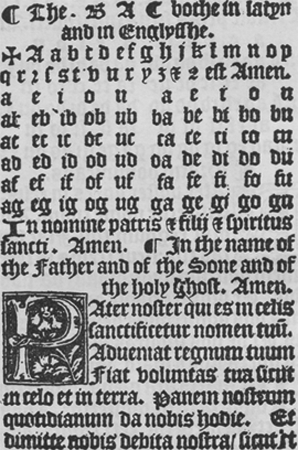 ¶ The. B A C bothe in latyn
and in Englysshe.
✠ A a b c d e f g h j k l m n o p
q r ꝛ ſ s t v u x y z ⁊ ꝯ est Amen.
a e i o u a e i o u
ab eb ib ob ub ba be bi bo bu
ac ec ic oc uc ca ce ci co cu
ad ed id od ud da de di do du
af ef if of uf fa fe fi fo fu
ag eg ig og ug ga ge gi go gu
In nomine patris ⁊ filij ⁊ spiritus
sancti. Amen. ¶ In the name of
the Father and of the Sone and of
the holy Ghost. Amen.
PAter noster qui es in celis
sanctificetur nomen tuū.
Adueniat regnum tuum
Fiat voluntas tua sicut
in celo et in terra. Panem nostrum
quotidianum da nobis hodie. Et
dimitte nobis debita nostra/ sicut ⁊t